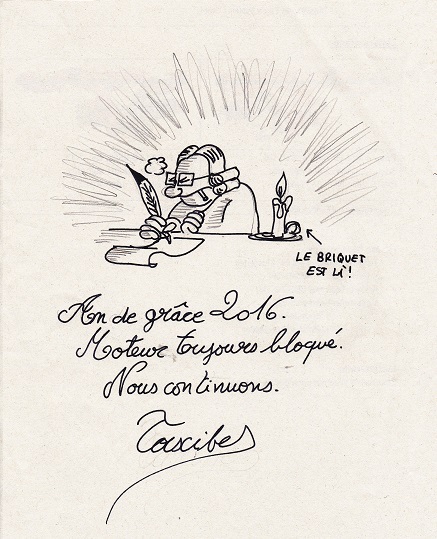 LE BRIQUET
EST LÀ!
An de grâce 2016.
Moteur toujours bloqué.
Nous continuons.